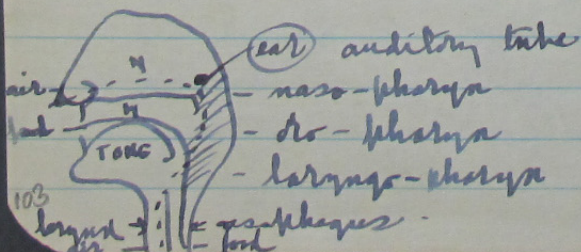 ear auditory tube
air
naso-pharynx
food
oro-pharynx
TONG
laryngo-pharynx
103
larynx oesophagus
air food